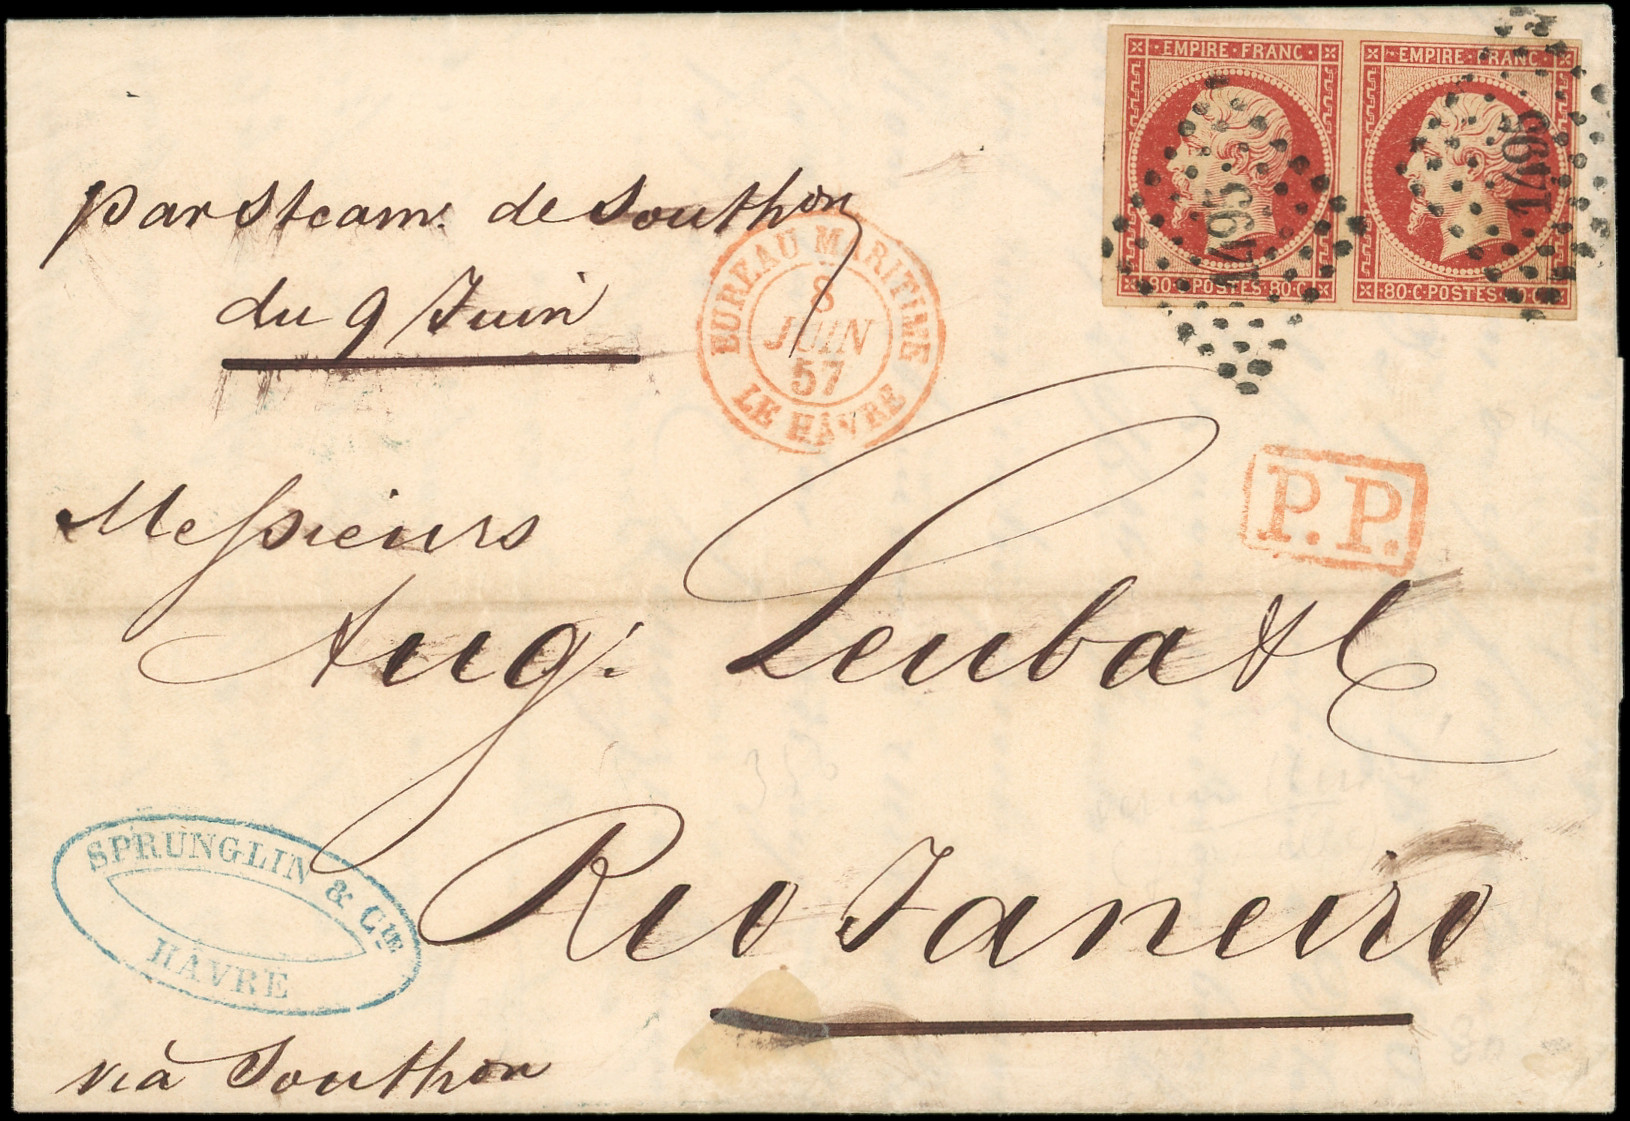 EMPIRE · FRANC · EMPIRE · FRANC ·
1495 1495
80·C·POSTES·80·C· 80·C·POSTES· 0·C·
par Steam. de Southon
du 9 Juin
BUREAU MARITIME
8
JUIN
57
LE HÂVRE
P.P.
Messieurs
Aug. Leuba & C
Rio Janeiro
SPRUNGLIN & CIE
HÂVRE
via Southon